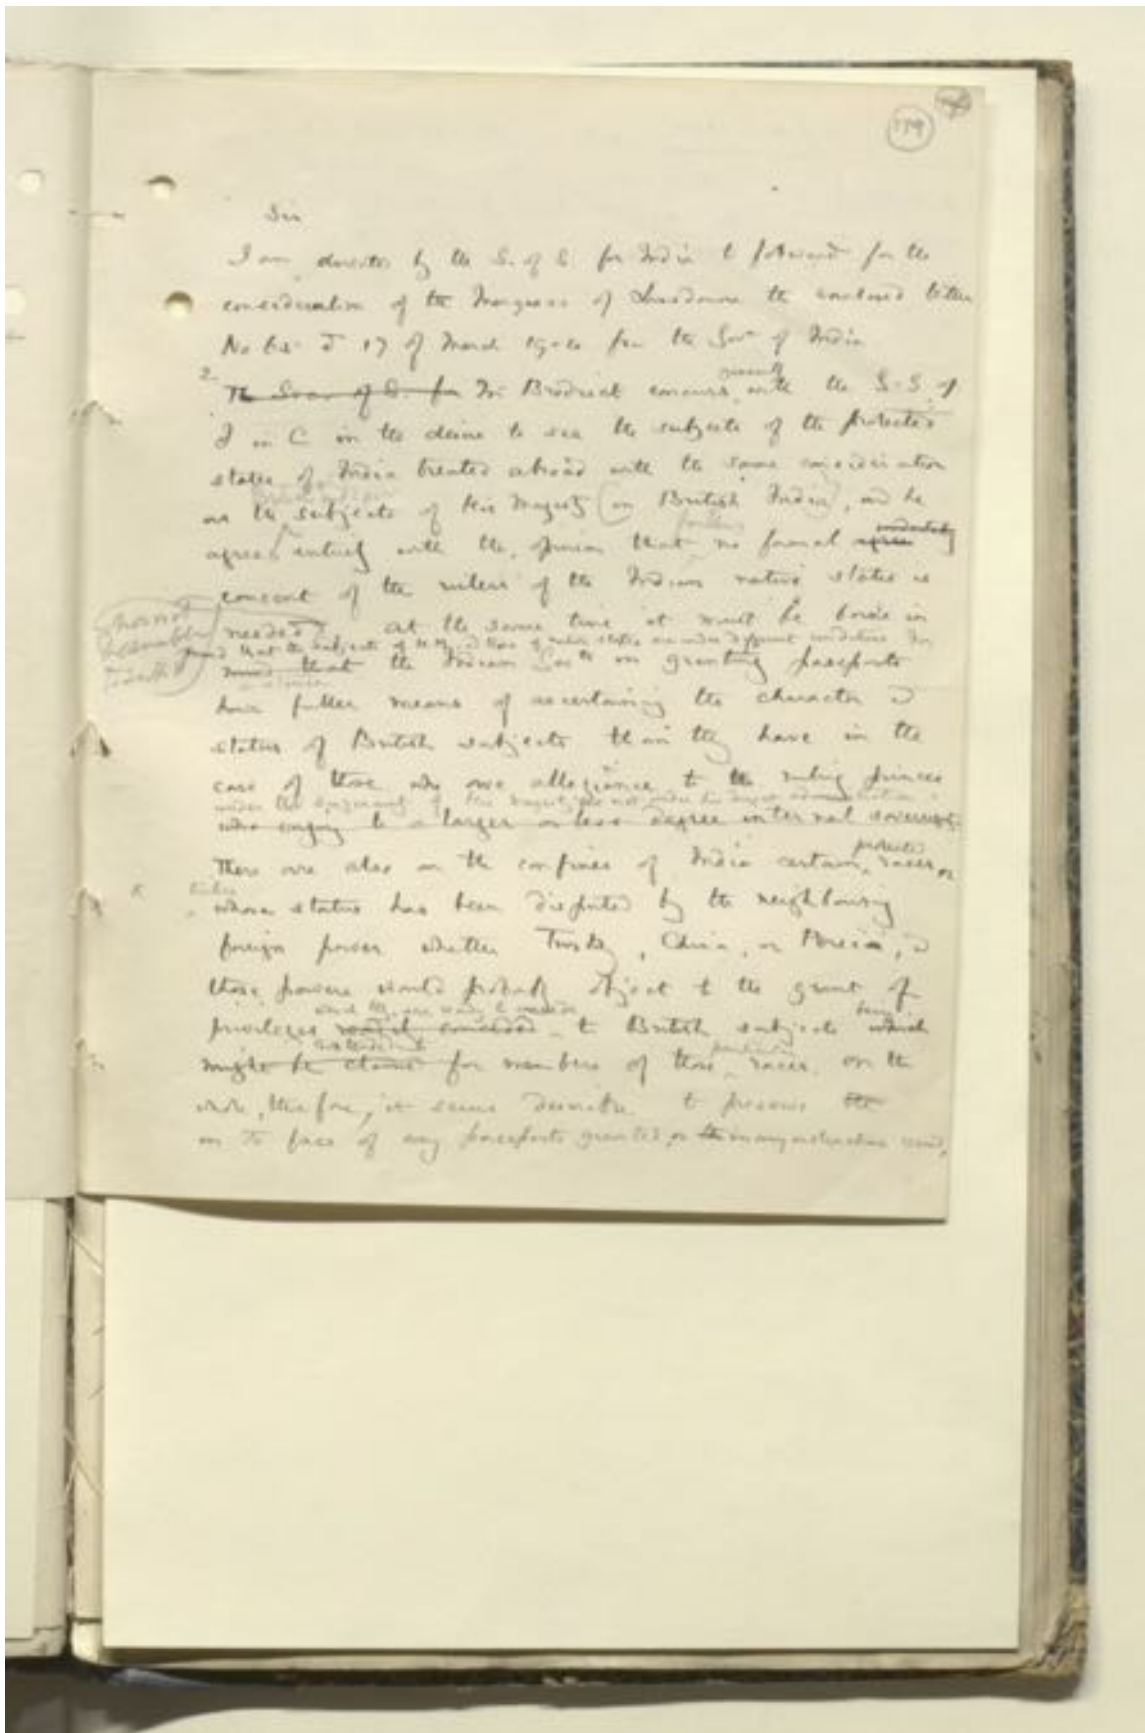 179
Sir
I am directed by the S. of S. for India to forward for the
consideration of the Marquess of Lansdowne the enclosed letter
No 65 d 17 of March from the Govt of India
2. The Secy of S. for Mr Brodrick concurs generally with the G.G. of
I in C in the desire to see the subjects of the protected
states of India treated abroad with the same consideration
as the subjects of His Majesty (in British India), and he
agrees entirely with the opinion that no formal
consent of the rulers of the Indian native states is
needed. At the same time it must be borne in
mind that the subjects of H.M. & those of native states are under different conditions. For
mind that the Indian Govt in granting passports
have fuller means of ascertaining the character &
status of British subjects than they have in the
case of those who owe allegiance to the ruling princes
under the suzerainty of His Majesty
who enjoy to a larger or less degree internal sovereignty.
There are also on the confines of India certain protected races or
tribes whose status has been disputed by the neighbouring
foreign power whether Turkey, China, or Persia, &
those powers would probably object to the grant of
privileges to British subjects being which
might be claimed for members of those particular races. On the
whole, therefore, it seems desirable to preserve the
on the face of any passports granted, or in any instructions